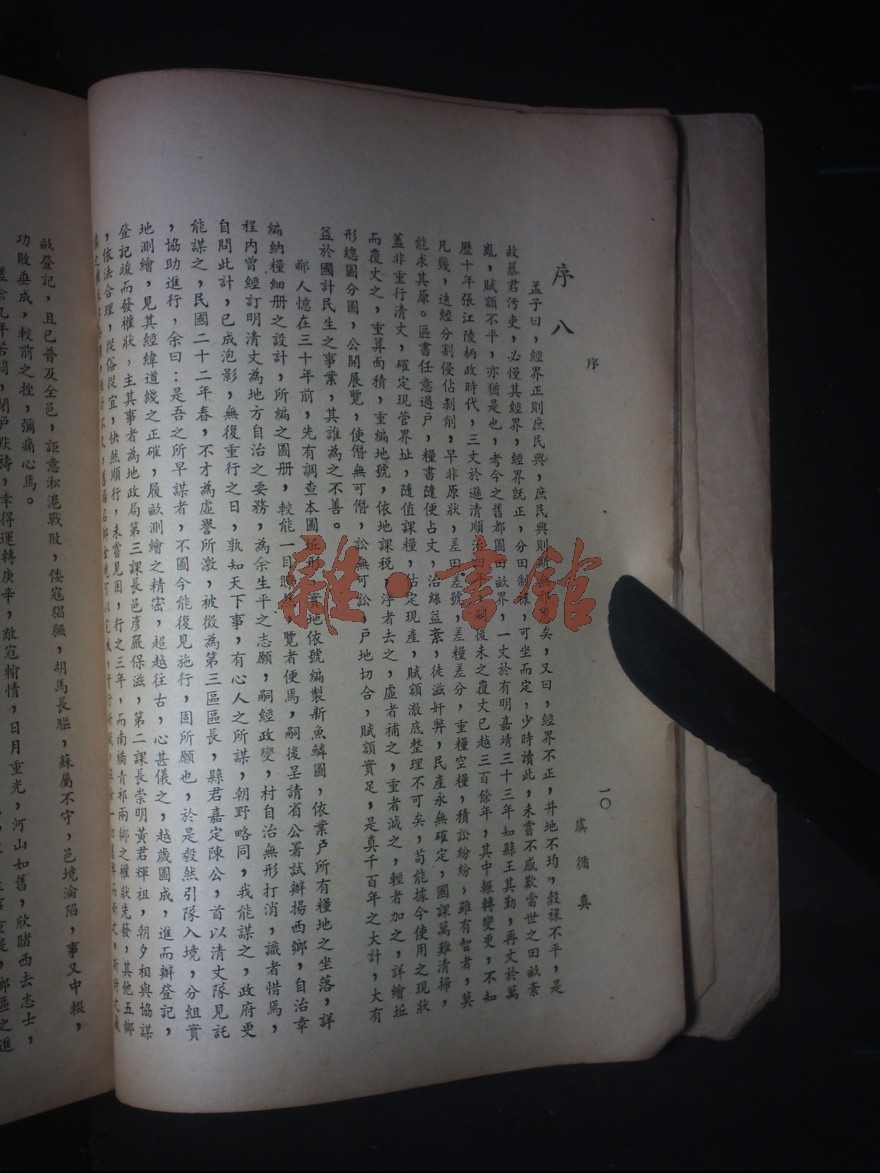 序
一〇
序八
虞循真
孟子曰,經界正則庶民興,庶民興則 矣,又曰,經界不正,井地不均,穀祿不平,是
故暴君汚吏,必慢其經界,經界旣正,分田制祿,可坐而定,少時讀此,未嘗不感歎當世之田畝紊
亂,賦額不平,亦猶是也,考今之舊都圖田畝界,一丈於有明嘉靖三十三年知縣王其勤,再丈於萬
歷十年張江陵柄政時代,三丈於遜清順治 嗣後未之覆丈已越三百餘年,其中輾轉變更,不知
凡幾,迭經分割侵佔剝削,早非原狀,差田差號,差糧差分,重糧空糧,積訟紛紛,雖有智者,莫
能求其原。區書任意過戶,糧書隨便占丈,治絲益紊,徒滋奸弊,民產永無確定,國課萬難清掃,
蓋非重行清丈,確定現管界址,隨值課糧,估定現產,賦額澈底整理不可矣,苟能據今使用之現狀
而覆丈之,重算面積,重編地號,依地課稅,浮者去之,虛者補之,重者減之,輕者加之,詳繪坵
形總圖分圖,公開展覽,使僭無可僭,訟無可訟,戶地切合,賦額實足,是真千百年之大計,大有
益於國計民生之事業,其誰為之不善。
鄙人憶在三十年前,先有調查本圖坵形, 地依號編製新魚鱗圖,依業戶所有糧地之坐落,詳
編納糧細冊之設計,所編之圖冊,較能一目瞭然,覽者便焉,嗣後呈請省公署試辦揚西鄉,自治章
程內曾經訂明清丈為地方自治之要務,為余生平之志願,嗣經政變,村自治無形打消,識者惜焉,
自問此計,已成泡影,無復重行之日,孰知天下事,有心人之所謀,朝野略同,我能謀之,政府更
能謀之,民國二十二年春,不才為虛譽所激,被徵為第三區區長,縣君嘉定陳公,首以清丈隊見託
,協助進行,余曰:是吾之所早謀者,不圖今能復見施行,固所願也,於是毅然引隊入境,分組實
地測繪,見其經緯道綫之正確,履畝測繪之精密,超越往古,心甚儀之,越歲圖成,進而辦登記,
登記竣而發權狀,主其事者為地政局第三課長邑彥嚴保滋,第二課長崇明黃君輝祖,朝夕相與協謀
,依法合理,從俗從宜,快然順行,未嘗見困,行之三年,而南橋青祁兩鄉之權狀先發,其他五鄉
畝登記,且已普及全邑,詎意淞滬戰敗,倭寇猖獗,胡馬長驅,蘇屬不守,邑境淪陷,事又中輟,
功敗垂成,較前之挫,彌痛心焉。
余九年苦悶,閉戶默待,幸得運轉庚辛,敵寇輸情,日月重光,河山如舊,欣睹西去志士,